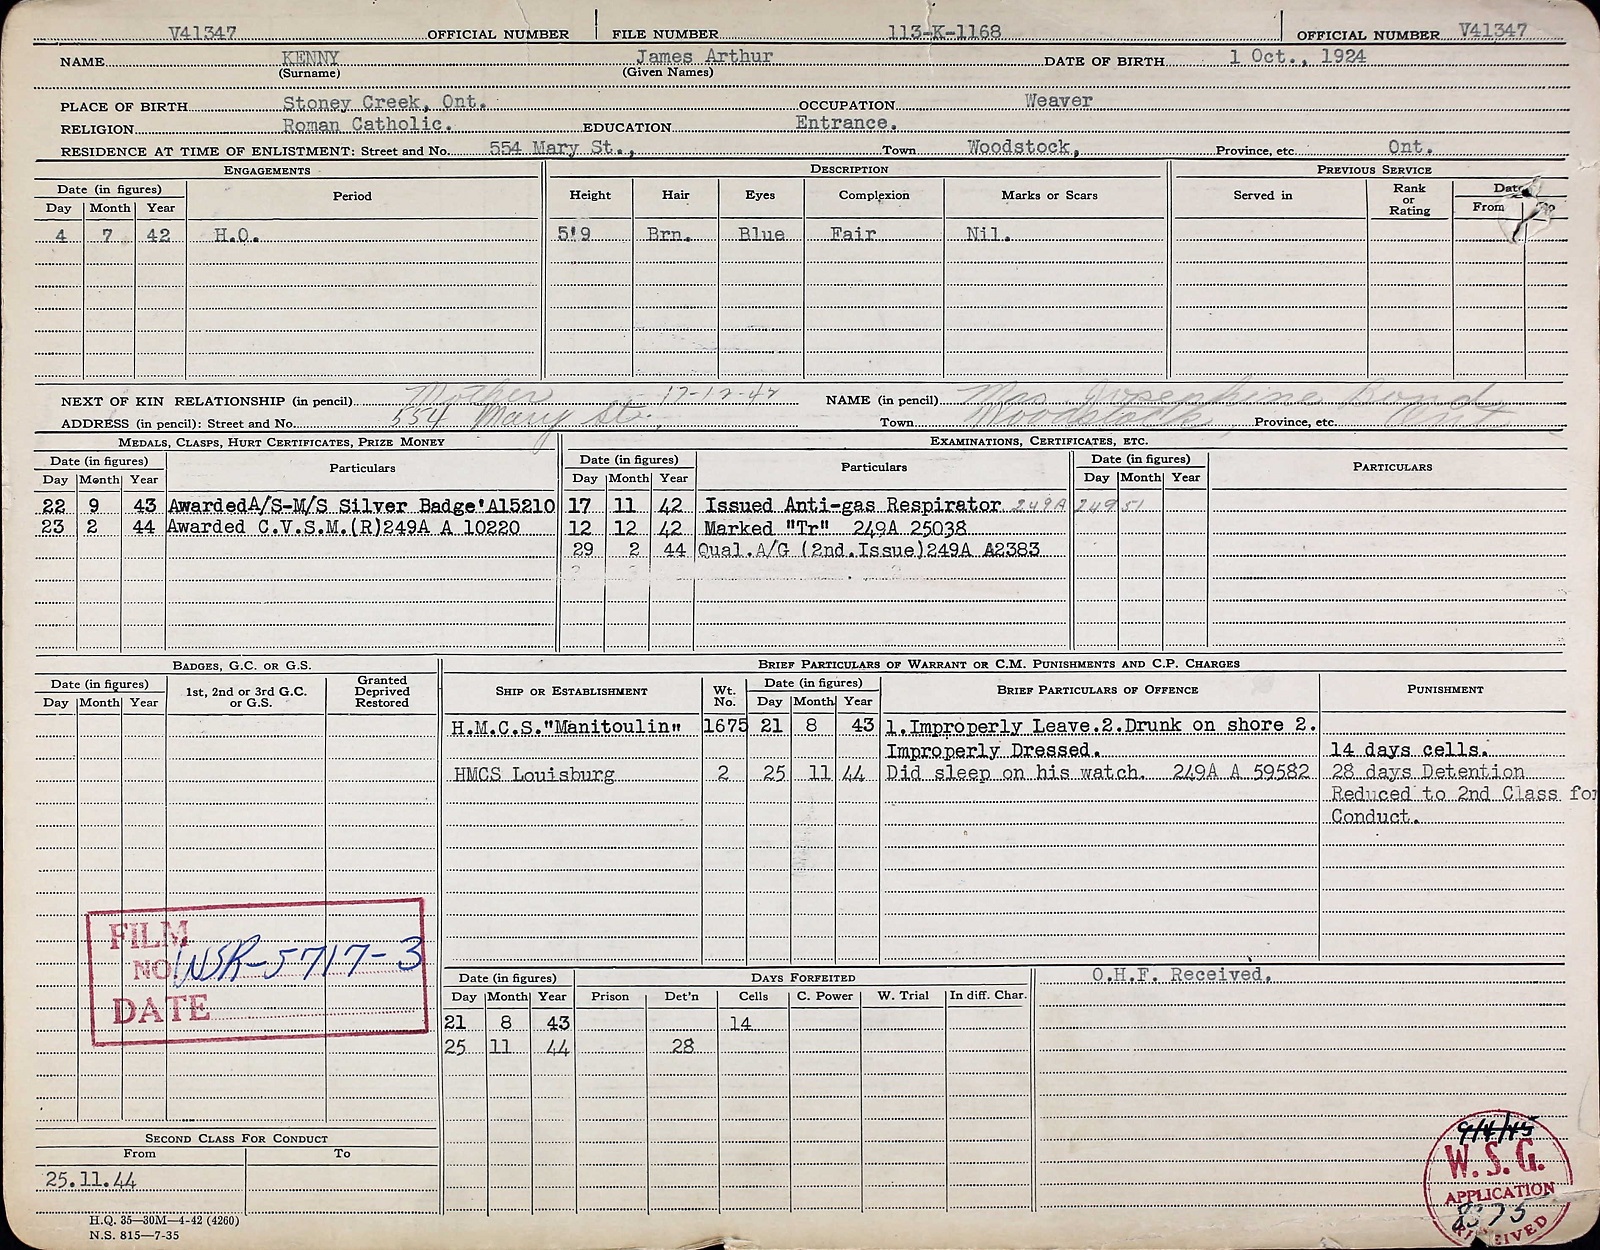 V41347 OFFICIAL NUMBER FILE NUMBER 113-K-1168 OFFICIAL NUMBER V41347
NAME KENNY James Arthur DATE OF BIRTH 1 Oct., 1924
(Surname) (Given Names)
PLACE OF BIRTH Stoney Creek, Ont. OCCUPATION Weaver
RELIGION Roman Catholic. EDUCATION Entrance.
RESIDENCE AT TIME OF ENLISTMENT: Street and No. 554 Mary St., Town Woodstock, Province, etc. Ont.
ENGAGEMENTS DESCRIPTION PREVIOUS SERVICE
Date (in figures) Period Height Hair Eyes Complexion Marks or Scars Served in Rank or Rating Date
Day Month Year From To
4 7 42 H.O. 5'9 Brn. Blue Fair Nil.
NEXT OF KIN RELATIONSHIP (in pencil) Mother 17-12-42 NAME (in pencil) Mrs Josephine Bond
ADDRESS (in pencil): Street and No. 554 Mary St., Town Woodstock Province, etc. Ont
MEDALS, CLASPS, HURT CERTIFICATES, PRIZE MONEY EXAMINATIONS, CERTIFICATES, ETC.
Date (in figures) Particulars Date (in figures) Particulars Date (in figures) PARTICULARS
Day Month Year Day Month Year Day Month Year
22 9 43 AwardedA/S-M/S Silver Badge'A15210 17 11 42 Issued Anti-gas Respirator 249A 24951
23 2 44 Awarded C.V.S.M.(R)249A A 10220 12 12 42 Marked "Tr" 249A 25038
29 2 44 Qual.A/G (2nd.Issue)249A A2383
BADGES, G.C. OR G.S. BRIEF PARTICULARS OF WARRANT OR C.M. PUNISHMENTS AND C.P. CHARGES
Date (in figures) 1st, 2nd or 3rd G.C. or G.S. Granted Deprived Restored SHIP OR ESTABLISHMENT Wt. No. Date (in figures) BRIEF PARTICULARS OF OFFENCE PUNISHMENT
Day Month Year Day Month Year
H.M.C.S."Manitoulin" 1675 21 8 43 1.Improperly Leave.2.Drunk on shore 2.
Improperly Dressed. 14 days cells.
HMCS Louisburg 2 25 11 44 Did sleep on his watch. 249A A 59582 28 days Detention
Reduced to 2nd Class for
Conduct.
FILM
NO. WSR-5717-3
DATE
Date (in figures) DAYS FORFEITED O.H.F. Received.
Day Month Year Prison Det'n Cells C. Power W. Trial In diff. Char.
21 8 43 14
25 11 44 28
SECOND CLASS FOR CONDUCT
From To
25.11.44
9/4/45
W.S.G.
APPLICATION
RECEIVED
H.Q. 35—30M—4-42 (4260)
N.S. 815—7-35